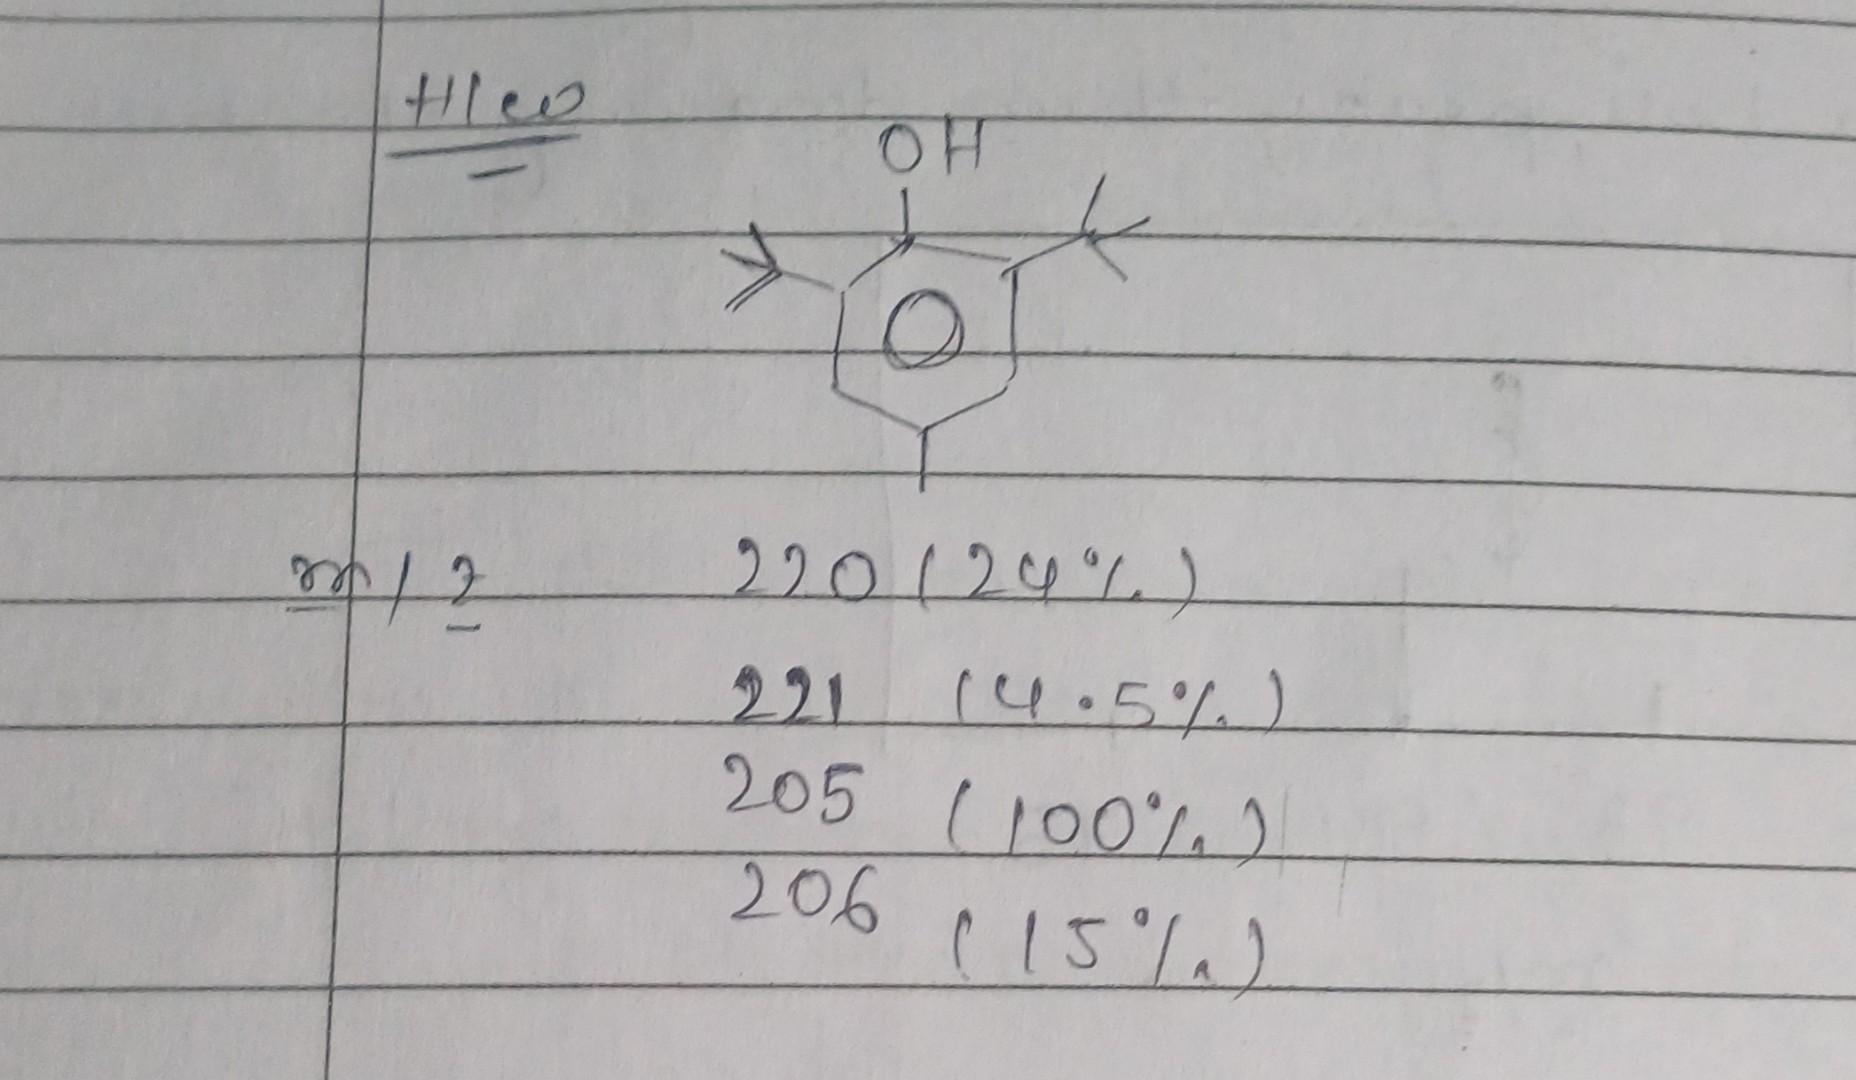 H/w
OH
m/z 220 (24%)
221 (4.5%)
205 (100%)
206 (15%)